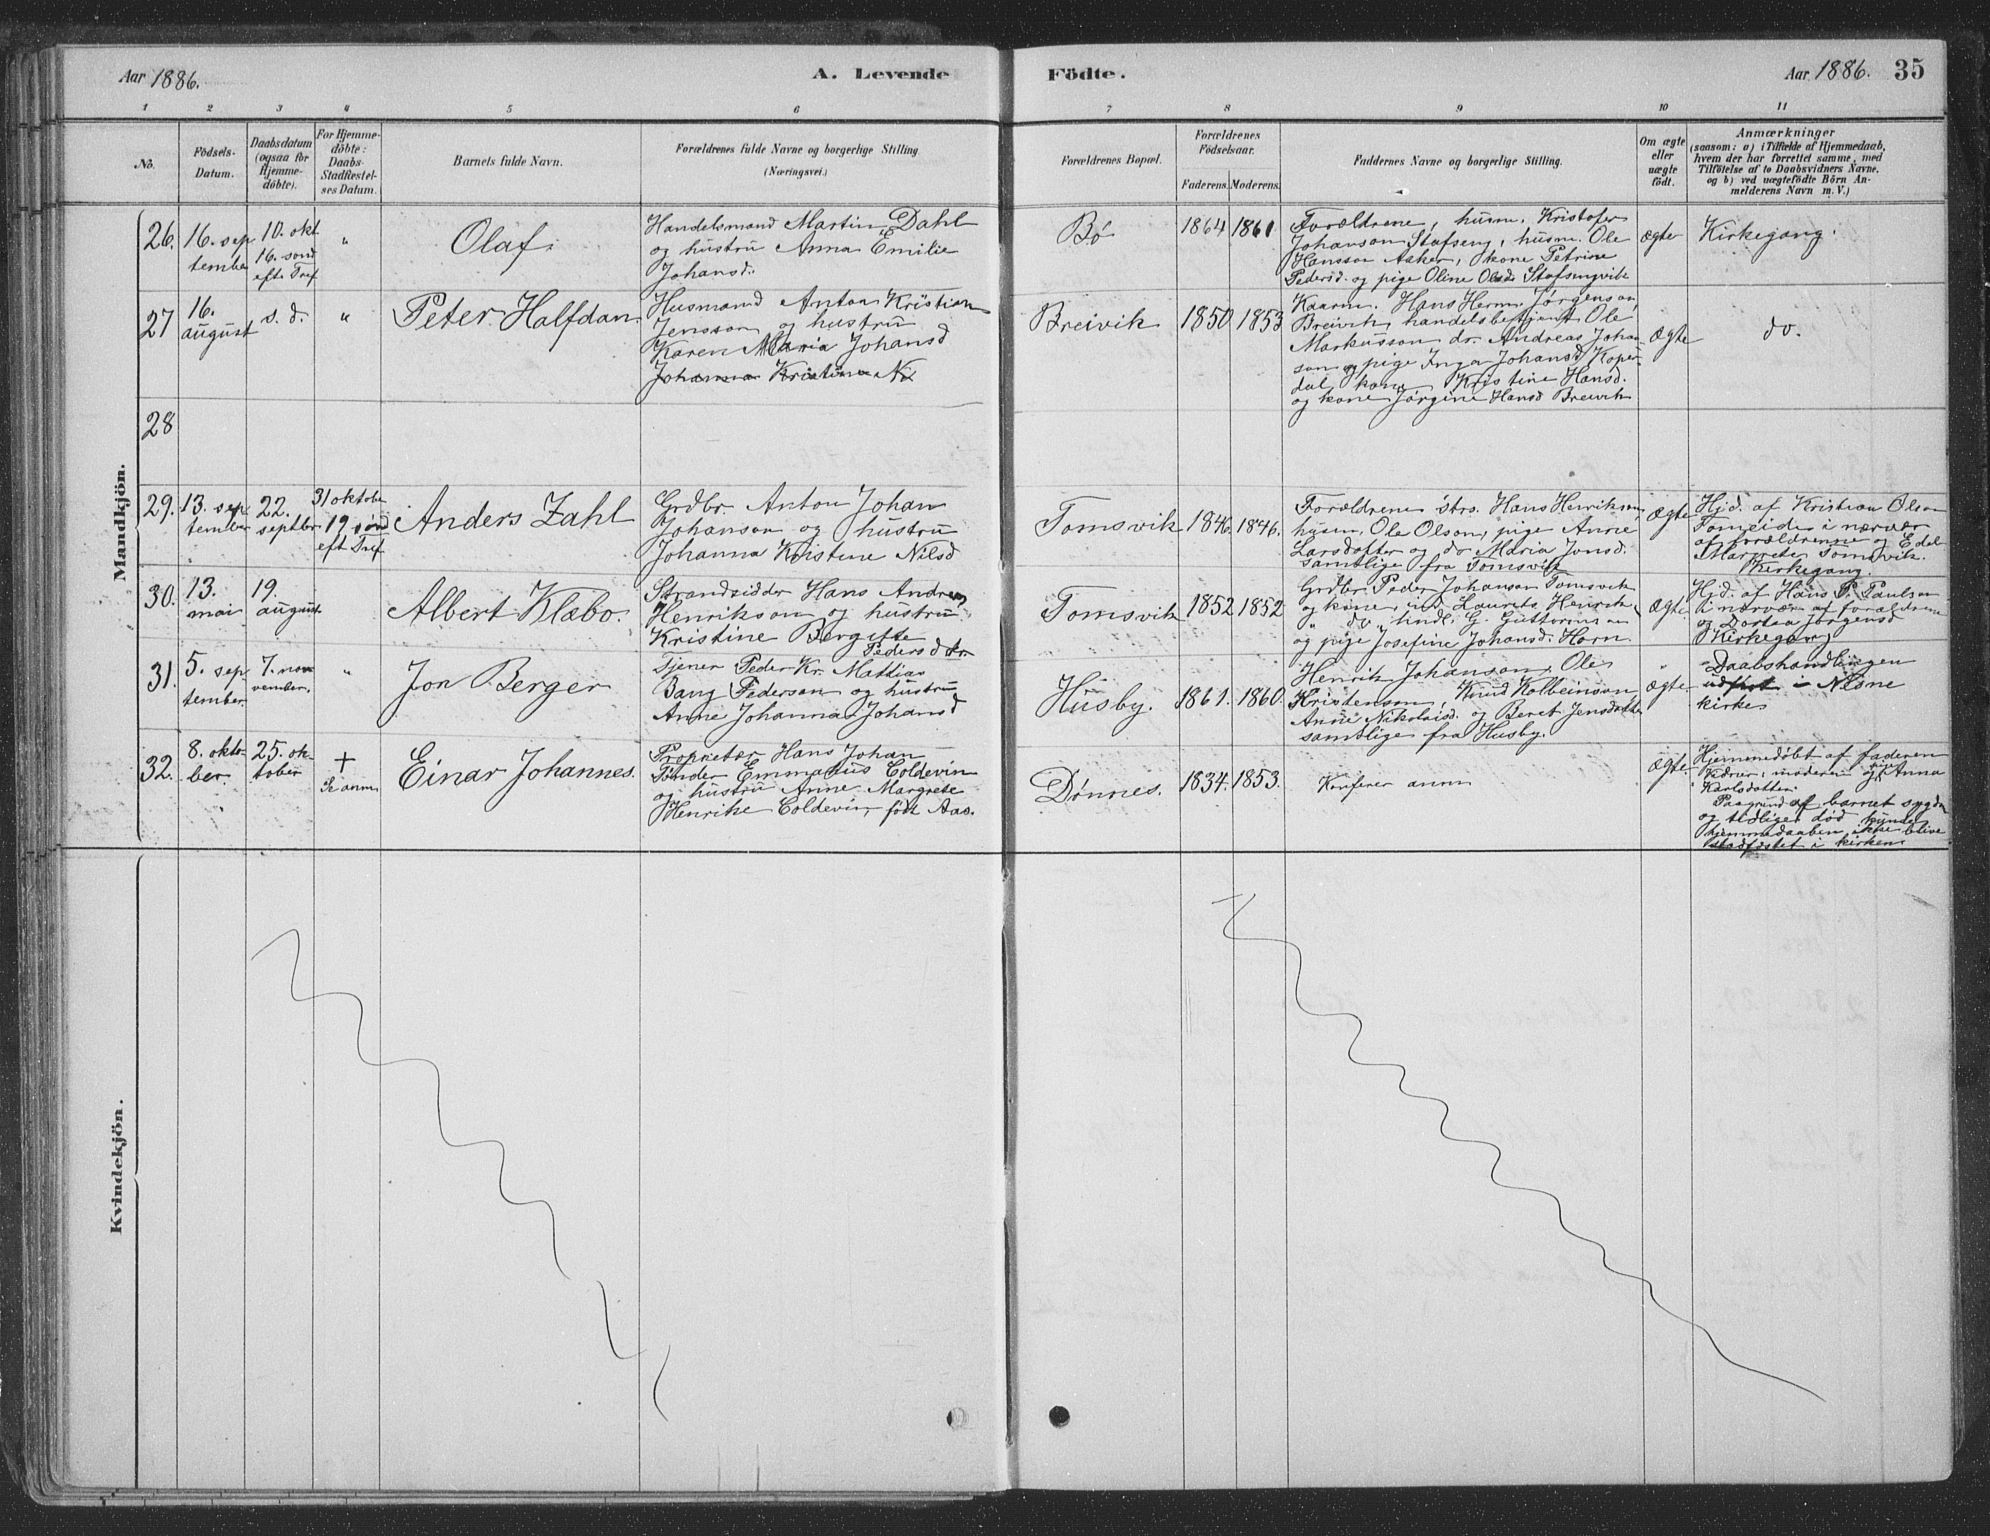 Aar 1886.
A. Levende
Födte.
Aar 1886. 35
1 2 3 4 5 6 7 8 9 10 11
No.
Födsels-
Datum.
Daabsdatum
(ogsaa for
Hjemme-
döbte).
For Hjemme-
döbte:
Daabs-
Stadfæstel-
ses Datum.
Barnets fulde Navn.
Forældrenes fulde Navne og borgerlige Stilling.
(Næringsvei.)
Forældrenes Bopæl.
Forældrenes
Födselsaar.
Faderens. Moderens.
Faddernes Navne og borgerlige Stilling.
Om ægte
eller
uægte
födt.
Anmærkninger
(saasom: a) i Tilfælde af Hjemmedaab,
hvem der har forrettet samme, med
Tilföielse af to Daabsvidners Navne,
og b) ved uægtefödte Börn An-
melderens Navn m. V.)
Mandkjön.
26. 16. sep
tember
10. okt
16. sønd
eft. Tref
"
Olaf.
Handelsmand Martin Dahl
og hustru Anna Emilie
Johansd.
Bø
1864 1861
Forældrene, husm. Kristofer
Johanson Stafseng, husm. Ole
Hansson Aaker, kone Petrine
Pedersd. og pige Oline Olsd. Stafsengvik
ægte
Kirkegang.
27 16.
august
s. d.
"
Peter Halfdan.
Husmand Anton Kristian
Jensson og hustru
Karen Maria Johansd
Johanna Kristine Ni
Breivik
1850 1853
Kaarm. Hans Herm. Jørgenson
Breivik, handelsbetjent Ole
Markusson do. Andreas Johan
son og pige Inga Johansd Koper
dal kone Kristine Hansd.
og kone Jørgine Hansd Breivik
Ægte
do.
28
29. 13. sep
tember
22.
septbr
31 oktobe
19 sønd
eft Tref
Anders Zahl
Grdbr. Anton Johan
Johanson og hustru
Johanna Kristine Nilsd
Tomsvik
1846. 1846.
Forældrene strs. Hans Henrikson
husm. Ole Olson, pige Anne
Larsdatter og do Maria Jonsd.
samtlige fra Tomsvik
Ægte
Hjd. af Kristian Olson
Tomeide i nærvær
af forældrene og Edel
Margrete Tomsvik.
Kirkegang.
30. 13.
mai
19.
august
Albert Klæbo.
Strandsidder Hans Andreas
Henrikson og hustru
Kristine Bergitte
Pedersdtr.
Tomsvik
1852 1852
Grdbr. Peder Johanson Tomsvik
og kone, Laurits Henrik
" do " G. Guttormson
og pige Josefine Johansd. Horn.
Ægte
Hjd. af Hans P. Paulson
i nærvær af forældrene
og Dortea Jørgensd
Kirkegang
31. 5. sep
tember
7. no
vember.
"
Jon Berger
Tjener Peder Kr. Mattias
Bang Pederson og hustru
Anne Johanna Johansd
Husby.
1861. 1860.
Henrik Johanson, Ole
Kristenson, Knud Kolbeinson
Anne Nikolaisd. og Beret Jensdatter
samtlige fra Husby.
Ægte
Daabshandlingen
udført i Nesne
kirke
32. 8. okto-
ber
25. ok-
tober
+
Se anm.
Einar Johannes.
Proprietær Hans Johan
Tønder Emmanus Coldevin
og hustru Anne Margrete
Henrike Coldevin, født Aas.
Dønnes.
1834. 1853.
Konferer anm
Ægte
Hjemmedøbt af faderen
moderen og pige Anna
Karlsdatter.
Paagrund af barnet sygdom
og tidlige død kunde
hjemmedaaben ikke blive
stadfæstet i kirken
Kvindekjön.